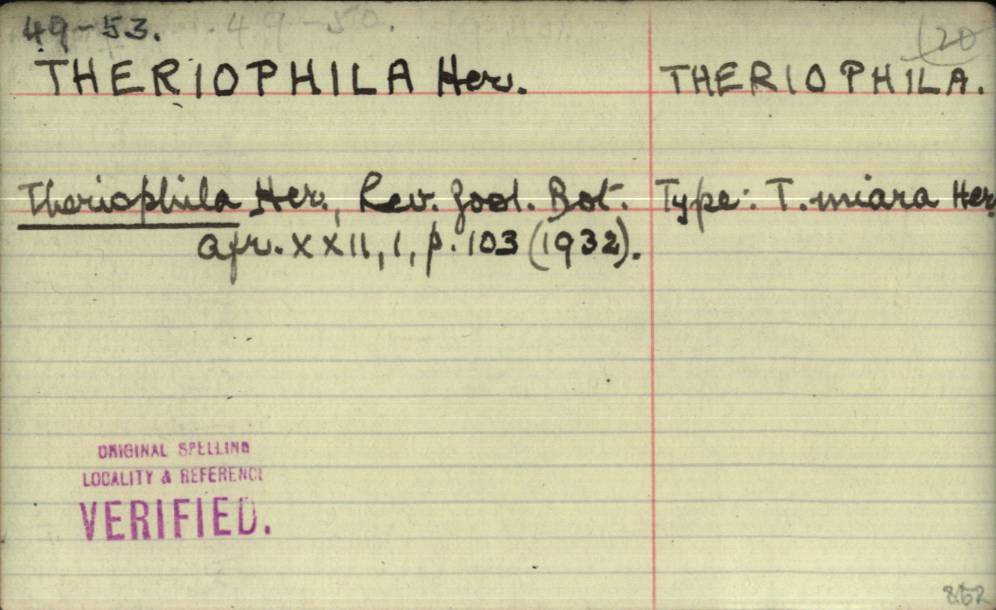 49-53. 49-50.
(20
THERIOPHILA Her. THERIOPHILA.
Theriophila Her., Rev. Zool. Bot. Type: T. miara Her.
Afr. XXII, 1, p. 103 (1932).
ORIGINAL SPELLING
LOCALITY & REFERENCE
VERIFIED.
852